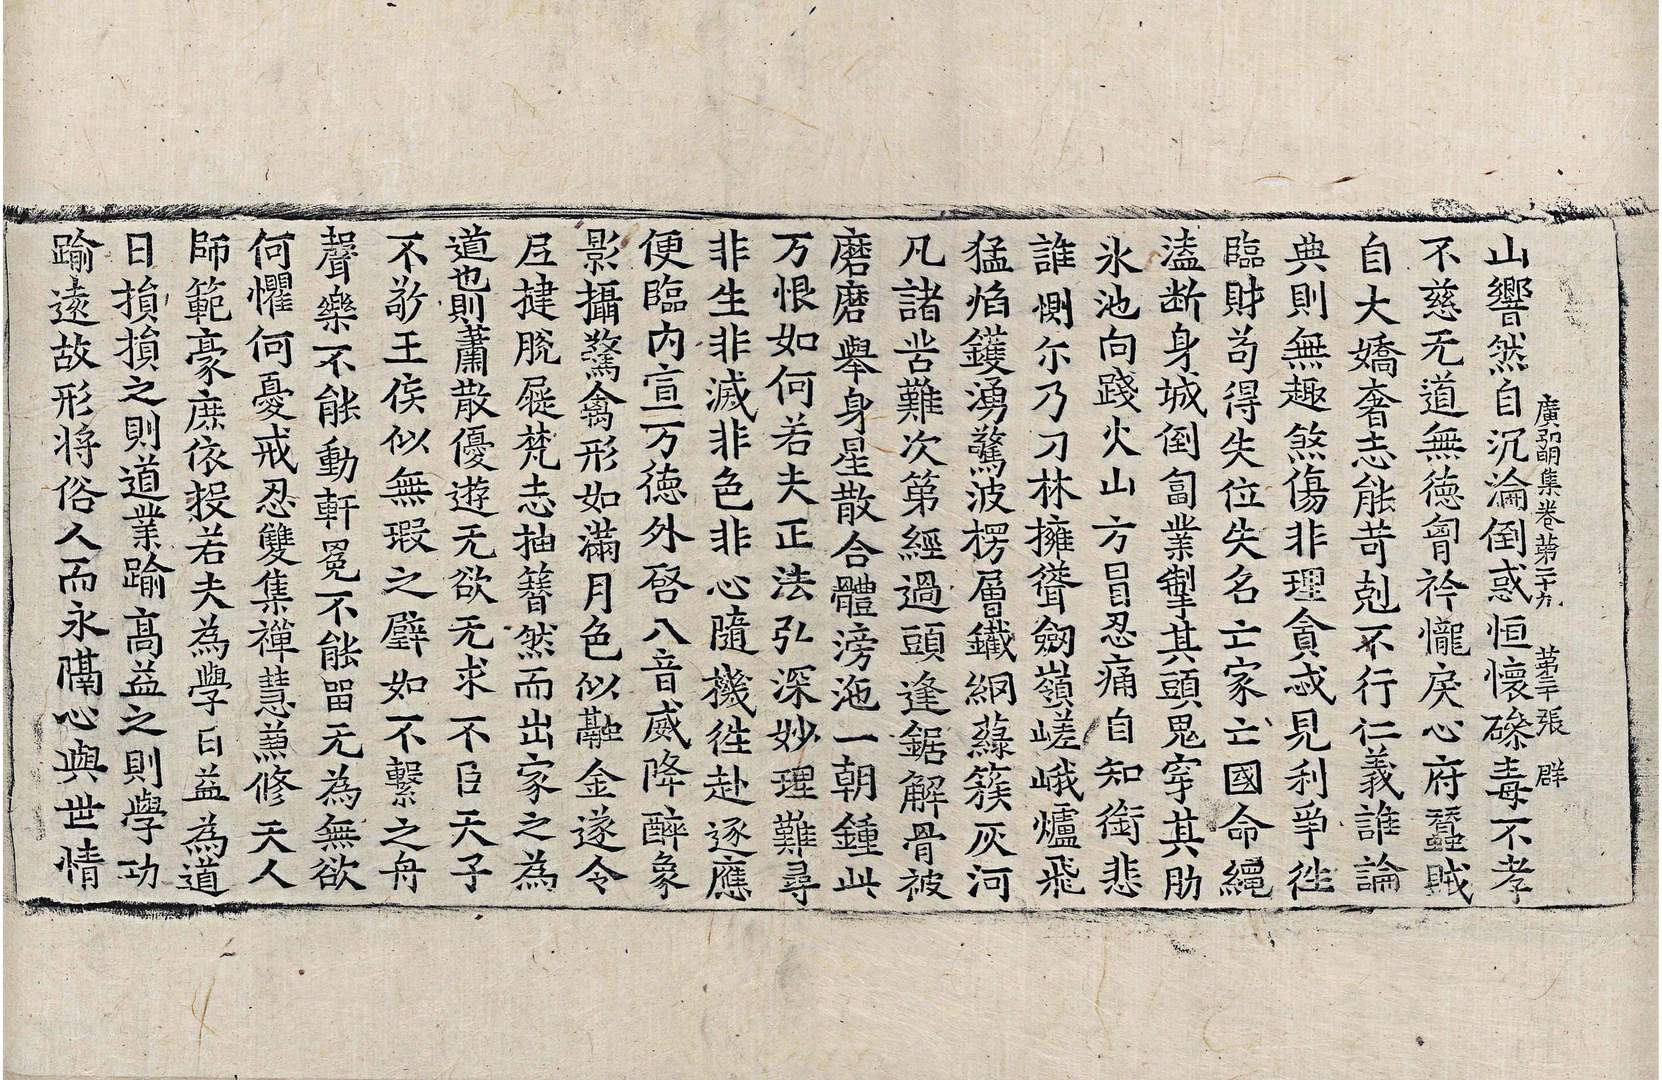 廣弘明集卷第二十九　第三張　群
山響然自沉淪倒惑恒懷磣毒不孝
不慈无道無德胷衿懭戾心府蠶賊
自大嬌奢志能苛剋不行仁義誰論
典則無趣煞傷非理貪忒見利爭徃
臨財苟得失位失名亡家亡國命繩
溘断身城倒匐業掣其頭鬼穿其肋
氷池向踐火山方冒忍痛自知銜悲
誰惻尔乃刀林擁聳劔嶺嵯峨爐飛
猛焰鑊湧驚波楞層鐵網蕀簇灰河
凡諸苦難次第經過頭逢鋸解骨被
磨磨舉身星散合體滂沲一朝鍾此
万恨如何若夫正法弘深妙理難尋
非生非滅非色非心隨機徃赴逐應
便臨内宣万德外啓八音威降醉象
影攝驚禽形如滿月色似融金遂令
𡰱揵脫屣梵志抽簪然而出家之為
道也則蕭散優遊无欲无求不臣天子
不敬王侯似無瑕之璧如不繫之舟
聲樂不能動軒冕不能留无為無欲
何懼何憂戒忍雙集禪慧兼修天人
師範豪庶依投若夫為學日益為道
日損損之則道業踰高益之則學功
踰遠故形将俗人而永隔心與世情